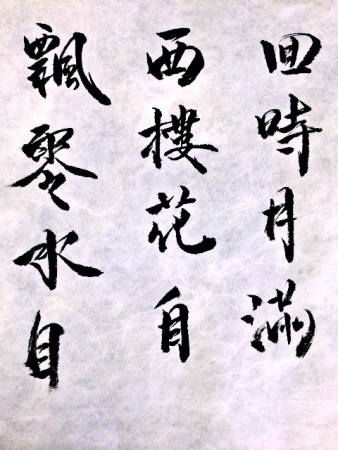 回時月滿
西樓花自
飄零水自